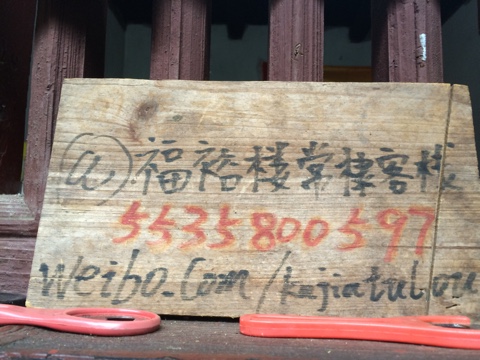 @福裕楼常棣客栈
5535800597
weibo.com/kejiatulou